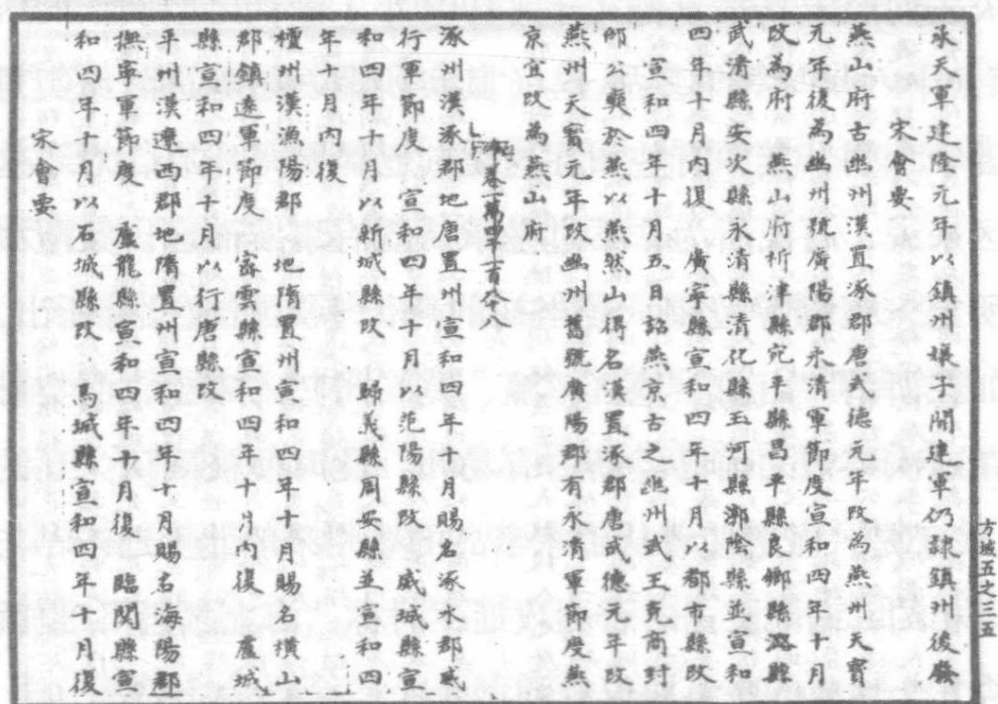 承天軍建隆元年以鎮州娘子關建軍仍隸鎮州後廢
宋會要
燕山府古幽州漢置涿郡唐武德元年改為燕州天寶
元年復為幽州號廣陽郡永清軍節度宣和四年十月
改為府　燕山府析津縣宛平縣昌平縣良鄉縣潞縣
武清縣安次縣永清縣清化縣玉河縣漷陰縣並宣和
四年十月內復　廣寧縣宣和四年十月以都市縣改
宣和四年十月五日詔燕京古之幽州武王克商封
邵公奭於燕以燕然山得名漢置涿郡唐武德元年改
燕州天寶元年改幽州舊號廣陽郡有永清軍節度燕
京宜改為燕山府
卷一萬四千一百八
涿州漢涿郡地唐置州宣和四年十月賜名涿水郡威
行軍節度　宣和四年十月以范陽縣改　威城縣宣
和四年十月以新城縣改　歸義縣固安縣並宣和四
年十月內復
檀州漢漁陽郡地隋置州　宣和四年十月賜名橫山
郡鎮遠軍節度　密雲縣宣和四年十月內復　威塞
縣宣和四年十月以行唐縣改
平州漢遼西郡地隋置州宣和四年十月賜名海陽郡
撫寧軍節度　盧龍縣宣和四年十月復　臨閡縣宣
和四年十月以石城縣改　馬城縣宣和四年十月復
宋會要
方域五之三五